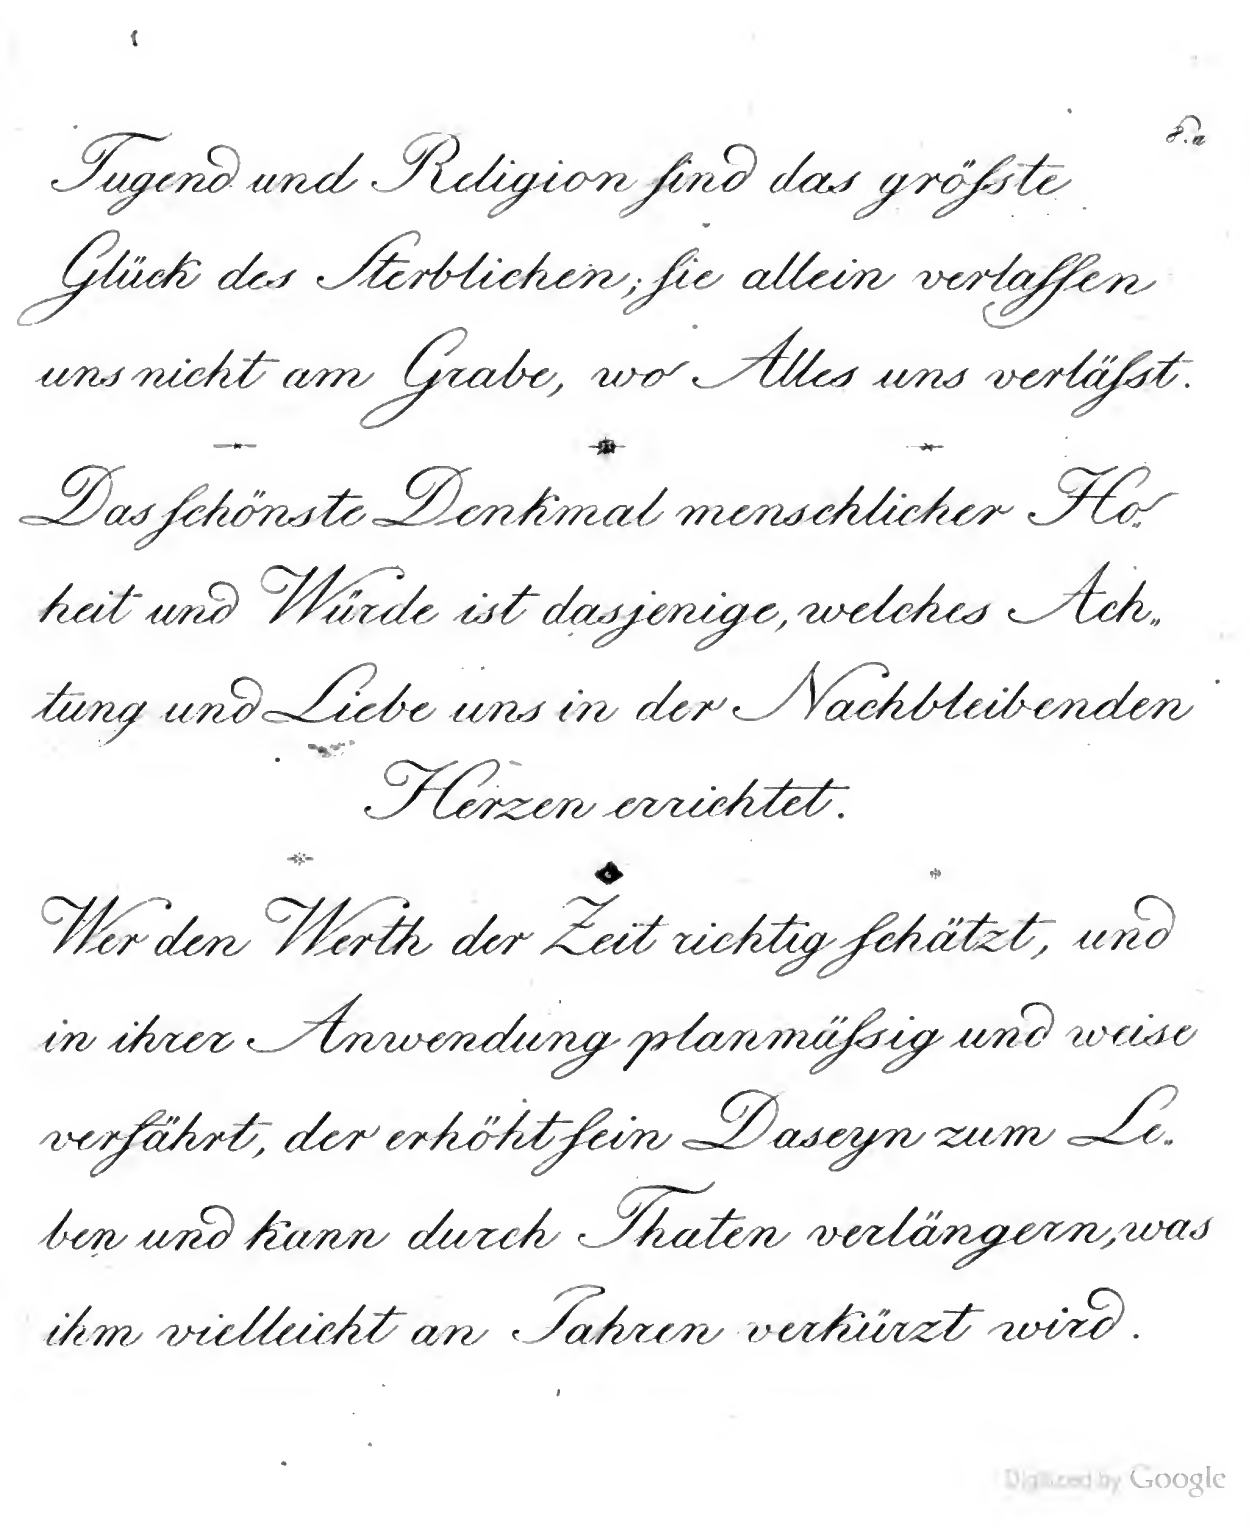 8.a
Tugend und Religion sind das größte
Glück des Sterblichen; sie allein verlassen
uns nicht am Grabe, wo Alles uns verläßt.
Das schönste Denkmal menschlicher Ho„
heit und Würde ist dasjenige, welches Ach„
tung und Liebe uns in der Nachbleibenden
Herzen errichtet.
Wer den Werth der Zeit richtig schätzt, und
in ihrer Anwendung planmäßig und weise
verfährt, der erhöht sein Daseyn zum Le„
ben und kann durch Thaten verlängern, was
ihm vielleicht an Jahren verkürzt wird.
Digitized by Google